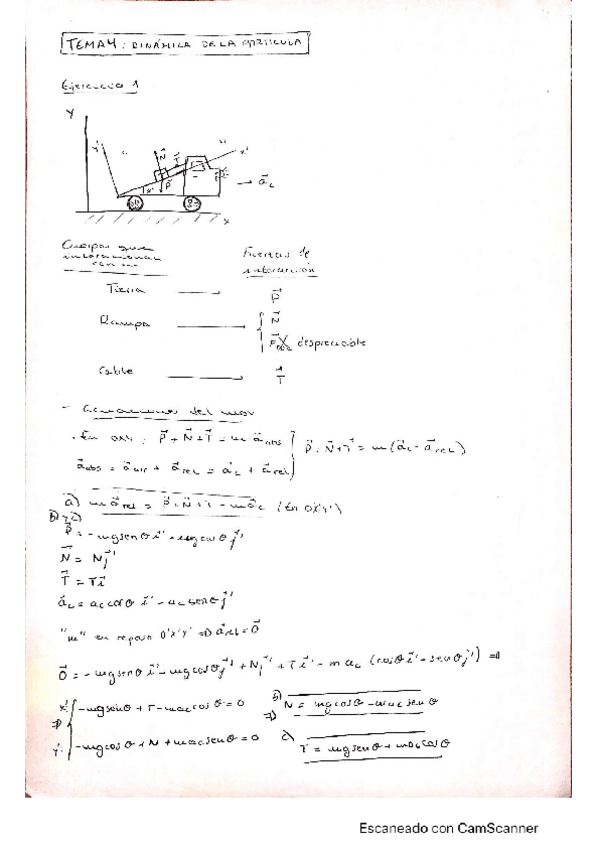 TEMA 4: DINÁMICA DE LA PARTÍCULA
Ejercicio 1
Y
y'
N
T
x'
P
→ a⃗c
x
Cuerpos que
interaccionan
con m
Fuerzas de
interacción
Tierra → P⃗
Rampa → { N⃗
F⃗roz despreciable
Cable → T⃗
- Ecuaciones del mov
· En OXY: P⃗ + N⃗ + T⃗ = m a⃗abs } P⃗ + N⃗ + T⃗ = m(a⃗c - a⃗rel)
a⃗abs = a⃗arr + a⃗rel = a⃗c + a⃗rel
a) m a⃗rel = P⃗ + N⃗ + T⃗ - m a⃗c (En O'X'Y')
b) y c)
P⃗ = -mg senθ i⃗' - mg cosθ j⃗'
N⃗ = N j⃗'
T⃗ = T i⃗'
a⃗c = ac cosθ i⃗' - ac senθ j⃗'
"m" en reposo O'X'Y' => a⃗rel = 0⃗
0⃗ = -mg senθ i⃗' - mg cosθ j⃗' + N j⃗' + T i⃗' - m ac (cosθ i⃗' - senθ j⃗') =>
=> { x': -mg senθ + T - mac cosθ = 0
y': -mg cosθ + N + mac senθ = 0
=> b) N = mg cosθ - mac senθ
c) T = mg senθ + mac cosθ
Escaneado con CamScanner